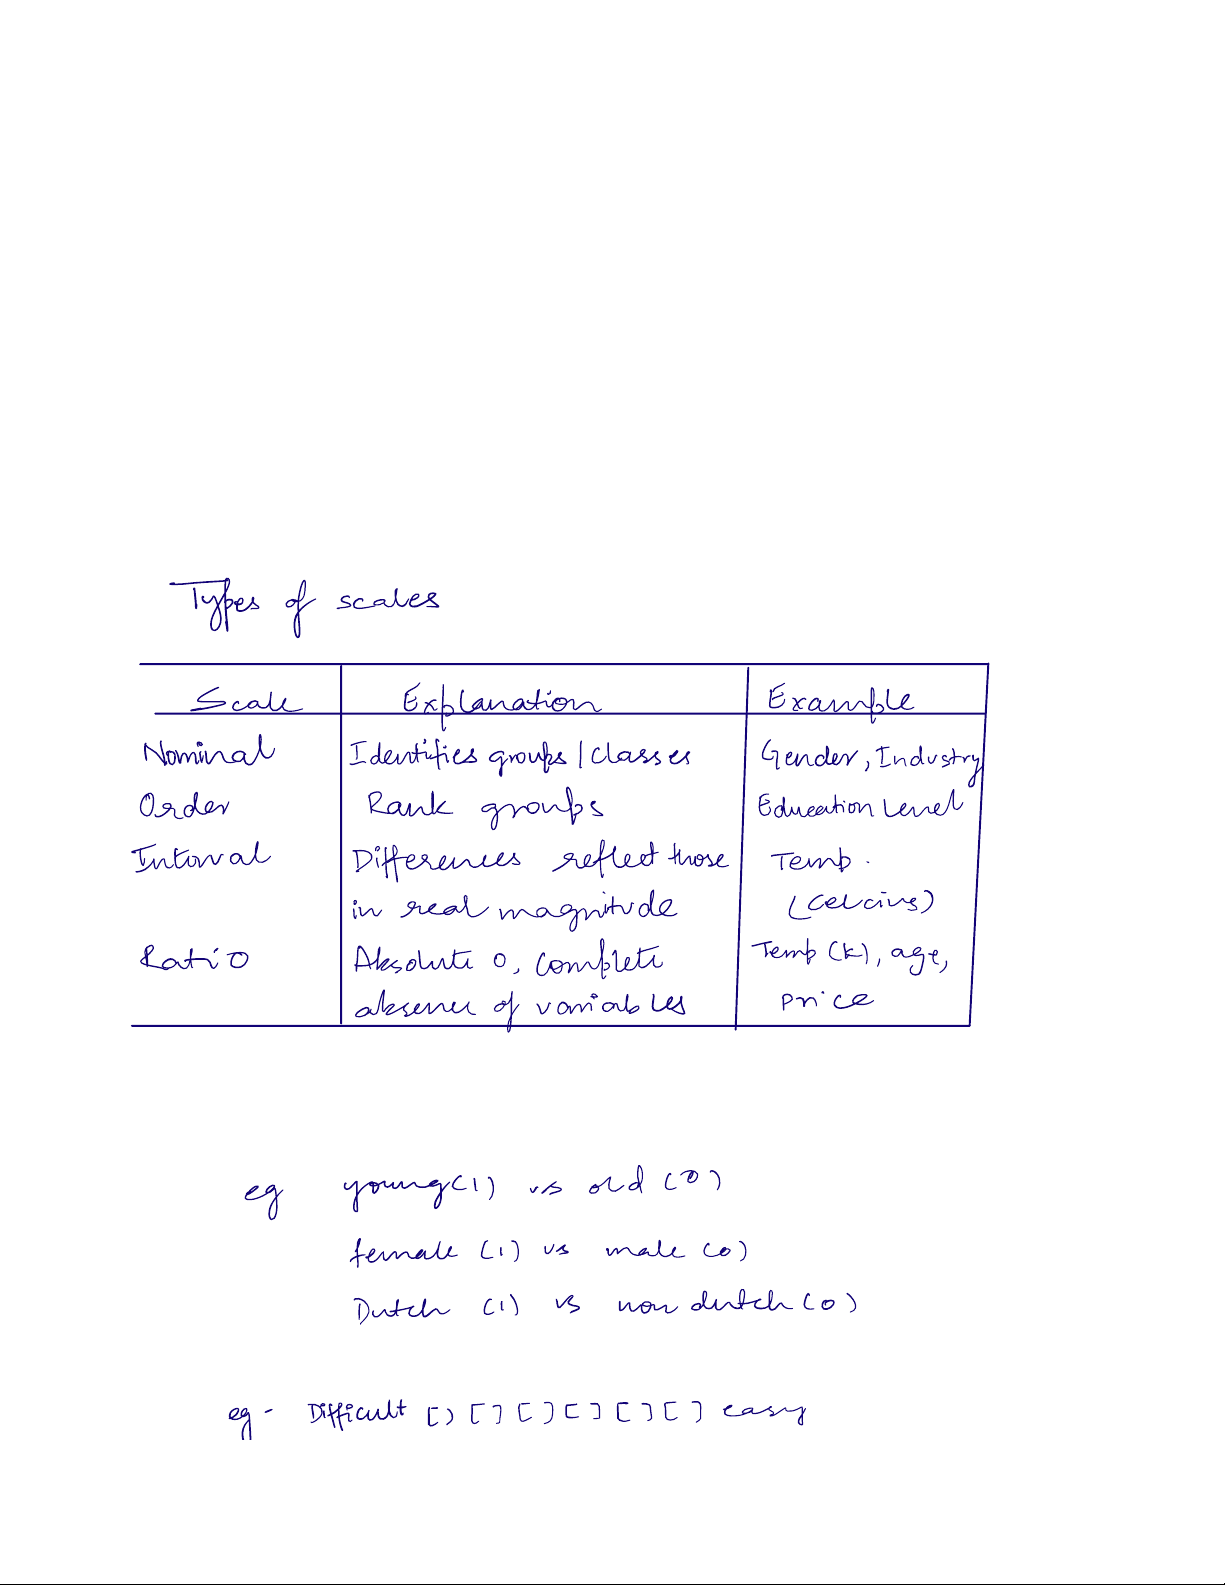 Types of scales
Scale Explanation Example
Nominal Identifies groups/classes Gender, Industry
Order Rank groups Education Level
Interval Differences reflect those Temp.
in real magnitude (celcius)
Ratio Absolute 0, complete Temp (k), age,
absence of variables price
eg young(1) vs old (0)
female (1) vs male (0)
Dutch (1) vs non dutch (0)
eg - Difficult [] [] [] [] [] [] easy